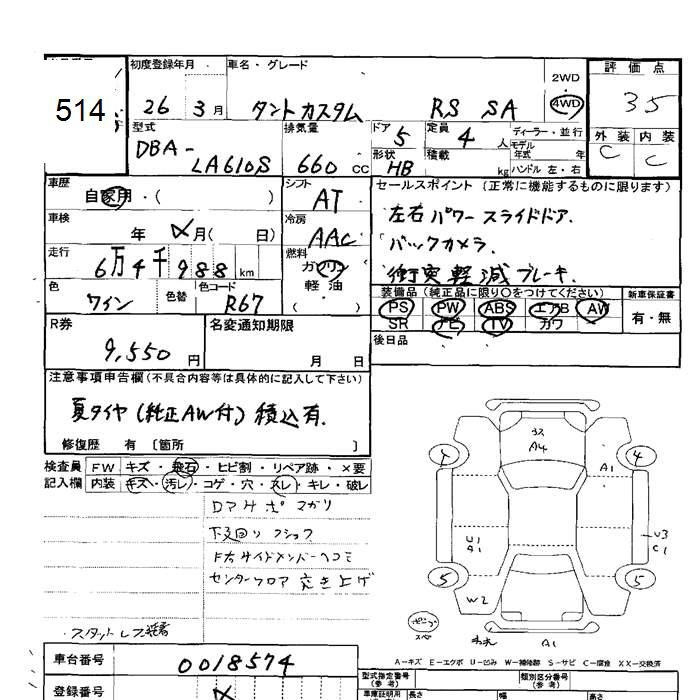 514
初度登録年月
26 3月
車名・グレード
タントカスタム RS SA
2WD
4WD
評価点
3.5
外装 内装
C C
型式
DBA-
LA610S
排気量
660 cc
ドア 5
形状
HB
定員 4 人
積載 kg
ディーラー・並行
モデル年式 年
ハンドル 左・右
車歴
自家用・( )
シフト
AT
車検
年 月( 日)
冷房
AAC
走行
6万4千988 km
燃料
ガソリン
軽油
( )
色
ワイン
色替
色コード
R67
セールスポイント (正常に機能するものに限ります)
左右パワースライドドア.
バックカメラ.
衝突軽減ブレーキ.
装備品(純正品に限り○をつけてください)
PS PW ABS エアB AW
SR ナビ TV カワ
新車保証書
有・無
後日品
R券
9,550 円
名変通知期限
月 日
注意事項申告欄(不具合内容等は具体的に記入して下さい)
夏タイヤ(純正AW付)積込有.
修復歴 有 〔箇所 〕
検査員 FW キズ・飛石・ヒビ割・リペア跡・×要
記入欄 内装 キズ・汚レ・コゲ・穴・スレ・キレ・破レ
Dアサポ マガリ
下廻り フショク
F右サイドメンバーヘコミ
センターフロア 突き上げ
スタットレス装着
コス
A4
4
4
A1
U1
A1
U3
C1
5
5
W2
A1
A-キズ E-エクボ U-凹み W-補修跡 S-サビ C-腐食 XX-交換済
車台番号
0018574
登録番号
型式指定番号
(参考)
類別区分番号
(参考)
車庫証明用
長さ 幅 高さ